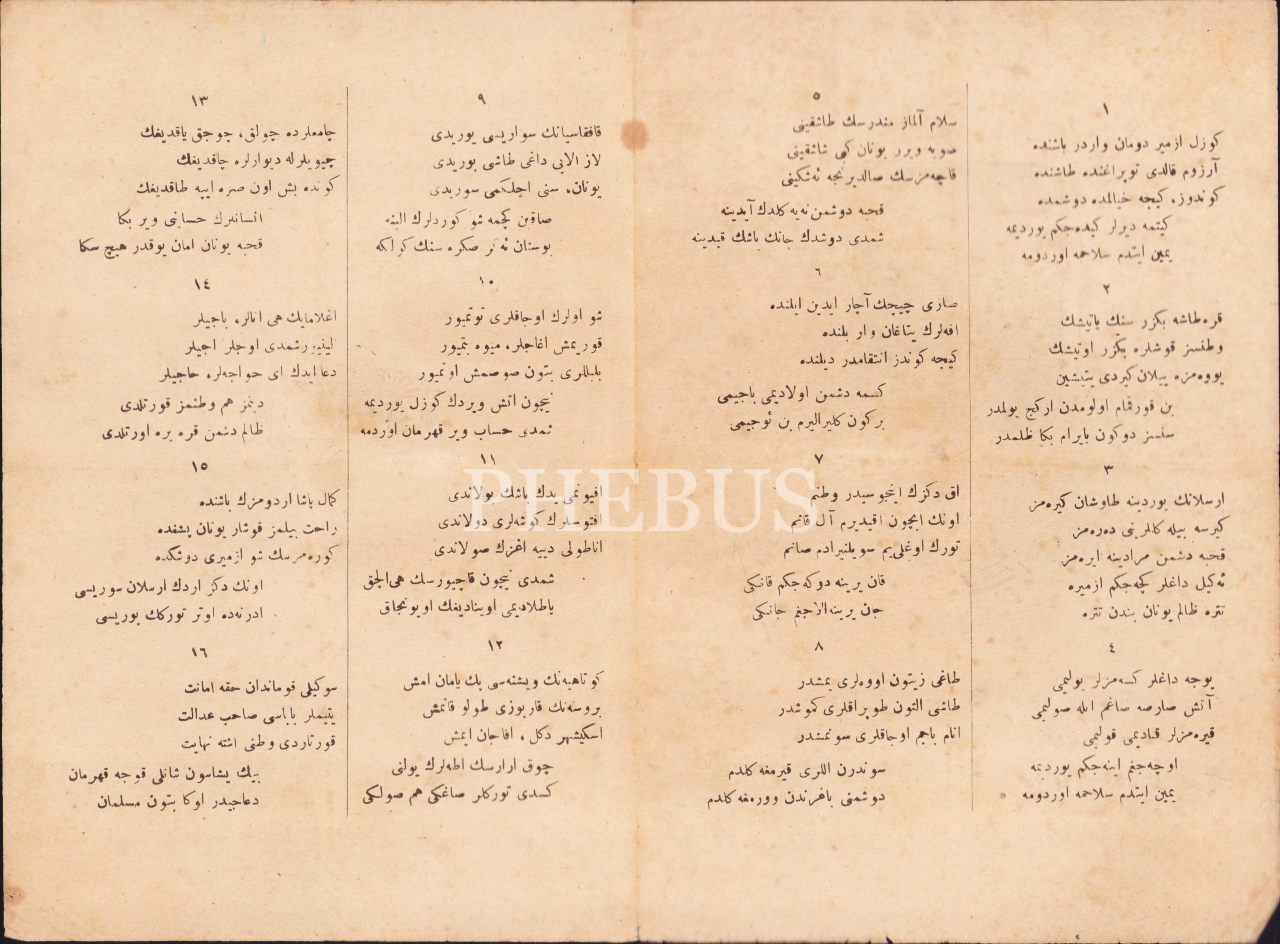 ١
كوزل ازمیر دومان واردر باشنده
آرزوم قالدی توپراغنده طاشنده
كوندوز، كیجه خیالمده دوشمده
كیتمه دیرلر كیده‌جكم یوردیمه
یمین ایتدم سلاحمه اوردومه
٢
قره‌طاشه بكزر سنك یاتیشك
وطنسز قوشلره بكزر اوتیشك
یووه‌مزه ییلان كیردی یتیشین
بن قورقمام اولومدن اركج یولمدر
سنسز دوكون بایرام بكا ظلمدر
٣
ارسلانك یوردینه طاوشان كیره‌مز
كیرسه بیله كاللرینی ده‌ره‌مز
قحبه دشمن مرادینه ایره‌مز
ئه‌كیل داغلر كچه‌جكم ازمیره
تتره ظالم یونان بندن تتره
٤
یوجه داغلر كسه‌مزلر یولیمی
آتش صارصه صاغم ایله صولیمی
قیره‌مزلر قنادیمی قولیمی
اوچه‌جغم اینه‌جكم یوردیمه
یمین ایتدم سلاحمه اوردومه
٥
سلام آلماز مندرسك طاشقینی
صوبه ویرر یونان كبی شاشقینی
قاچه‌مزسك صالدیرنجه ئه‌شكینی
قحبه دوشمن نه‌یه كلدك آیدینه
شمدی دوشدك جانك باشك قیدینه
٦
صاری چیچك آچار ایدین ایلنده
افه‌لرك یتاغان وار بلنده
كیجه كوندز انتقامدر دیلنده
كسمه دشمن اولادیمی باجیمی
بركون كلیر الیرم بن ئوجیمی
٧
اق دكزك اینجوسیدر وطنم
اونك ایچون اقیدیرم آل قانم
تورك اوغلی‌یم سویلنیرادم صانم
قان یرینه دوكه‌جكم قانكی
جان یرینه الاجغم جانكی
٨
طاغی زیتون اووه‌لری یمشدر
طاشی التون طوپراقلری كموشدر
انام باجم اوجاقلری سونمشدر
سوندرن اللری قیرمغه كلدم
دوشمنی باغرندن وورمغه كلدم
٩
قافقاسیانك سواریسی یوریدی
لاز الایی داغی طاشی بوریدی
یونان، سنی اجلكمی سوریدی
صاقین كچمه شو كوردلرك الینه
بوستان ئه‌كر صكره سنك
١٠
شو اولرك اوجاقلری توتمیور
قوریمش اغاجلر، میوه بتمیور
بلبللری بتون صوصمش اوتمیور
نیچون اتش ویردك كوزل یوردیمه
شمدی حساب ویر قهرمان اوردمه
١١
افیونمی یدك باشك بولاندی
افتوسلرك كوشه‌لری دولاندی
اناطولی دییه اغزك صولاندی
شمدی نیچون قاچیورسك هی الچق
پاطلادیمی اوینادیغك اویونجاق
١٢
كوتاهیه‌نك ویشنه‌سی پك یامان امش
بروسه‌نك قارپوزی طولو قانمش
اسكیشهر دكل، افاجان ایمش
چوق ارارسك اطه‌لرك یولنی
كسدی توركلر صاغكی هم صولكی
١٣
جامعلرده چولق، چوجق یاقدیغك
چیویلرله دیوارلره چاقدیغك
كونده بش اون صره ایپه طاقدیغك
انسانلرك حسابنی ویر بكا
قحبه یونان امان یوقدر هیچ سكا
١٤
اغلامایك هی انالر، باجیلر
شمدی اوجلر اجیلر
دعا ایدك ای خواجه‌لر، حاجیلر
دینمز هم وطنمز قورتلدی
ظالم دشمن قره یره اورتلدی
١٥
كمال پاشا اردومزك باشنده
راحت بیلمز قوشار یونان پشنده
كوره‌مزسك شو ازمیری دوشكده
اونك دكز اردك ارسلان سوریسی
ادرنه‌ده اوتر توركك بوریسی
١٦
سوكیلی قوماندان حقه امانت
یتیملر باباسی صاحب عدالت
قورتاردی وطنی اشته نهایت
بیك یشاسون شانلی قوجه قهرمان
دعاجیدر اوكا بتون مسلمان
PHEBUS